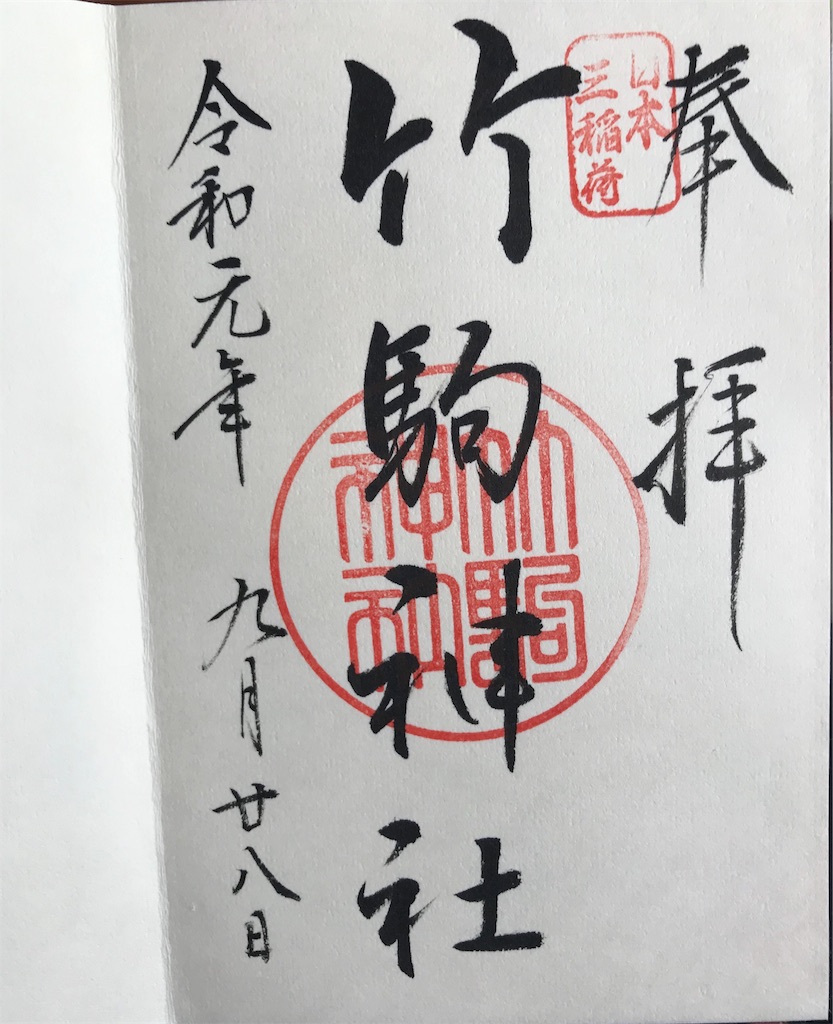 奉拝
日本
三稲荷
竹駒神社
竹駒
神社
令和元年 九月廿八日